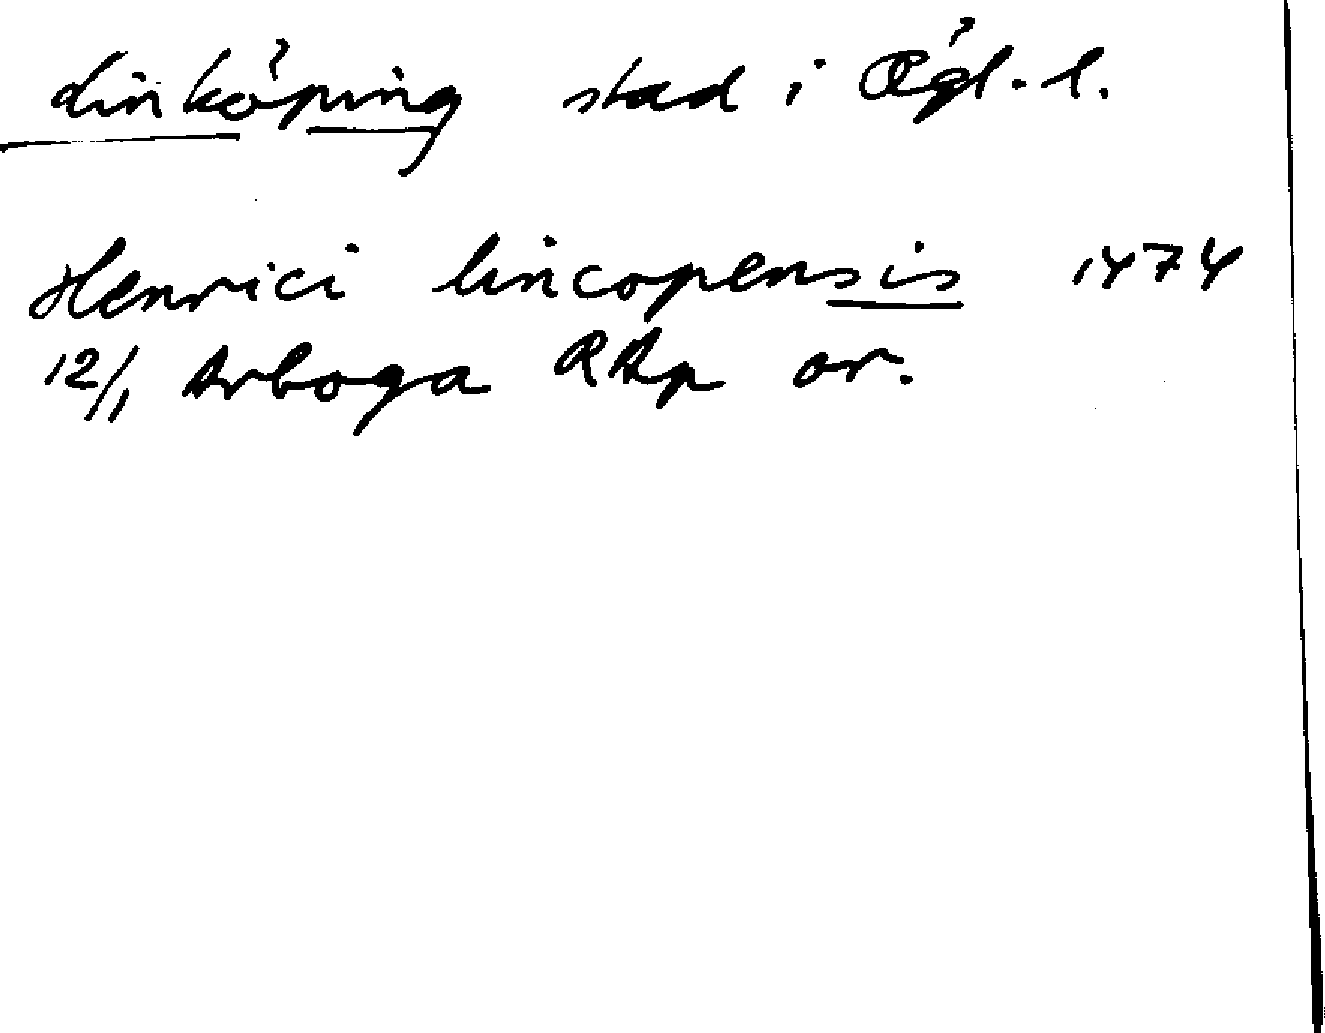 Linköping stad i Ögl. l.
Henrici lincopensis 1474
12/1 Arboga RAp or.